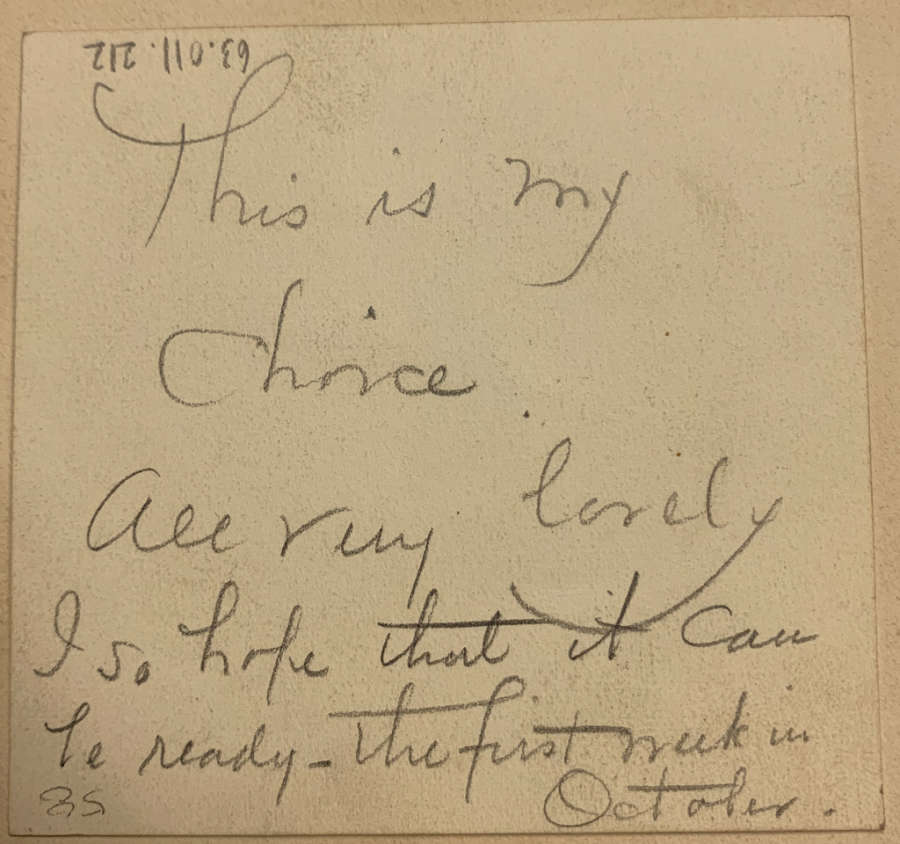 63.011.212
This is my
Choice.
All very lovely
I so hope that it can
be ready - the first week in
October.